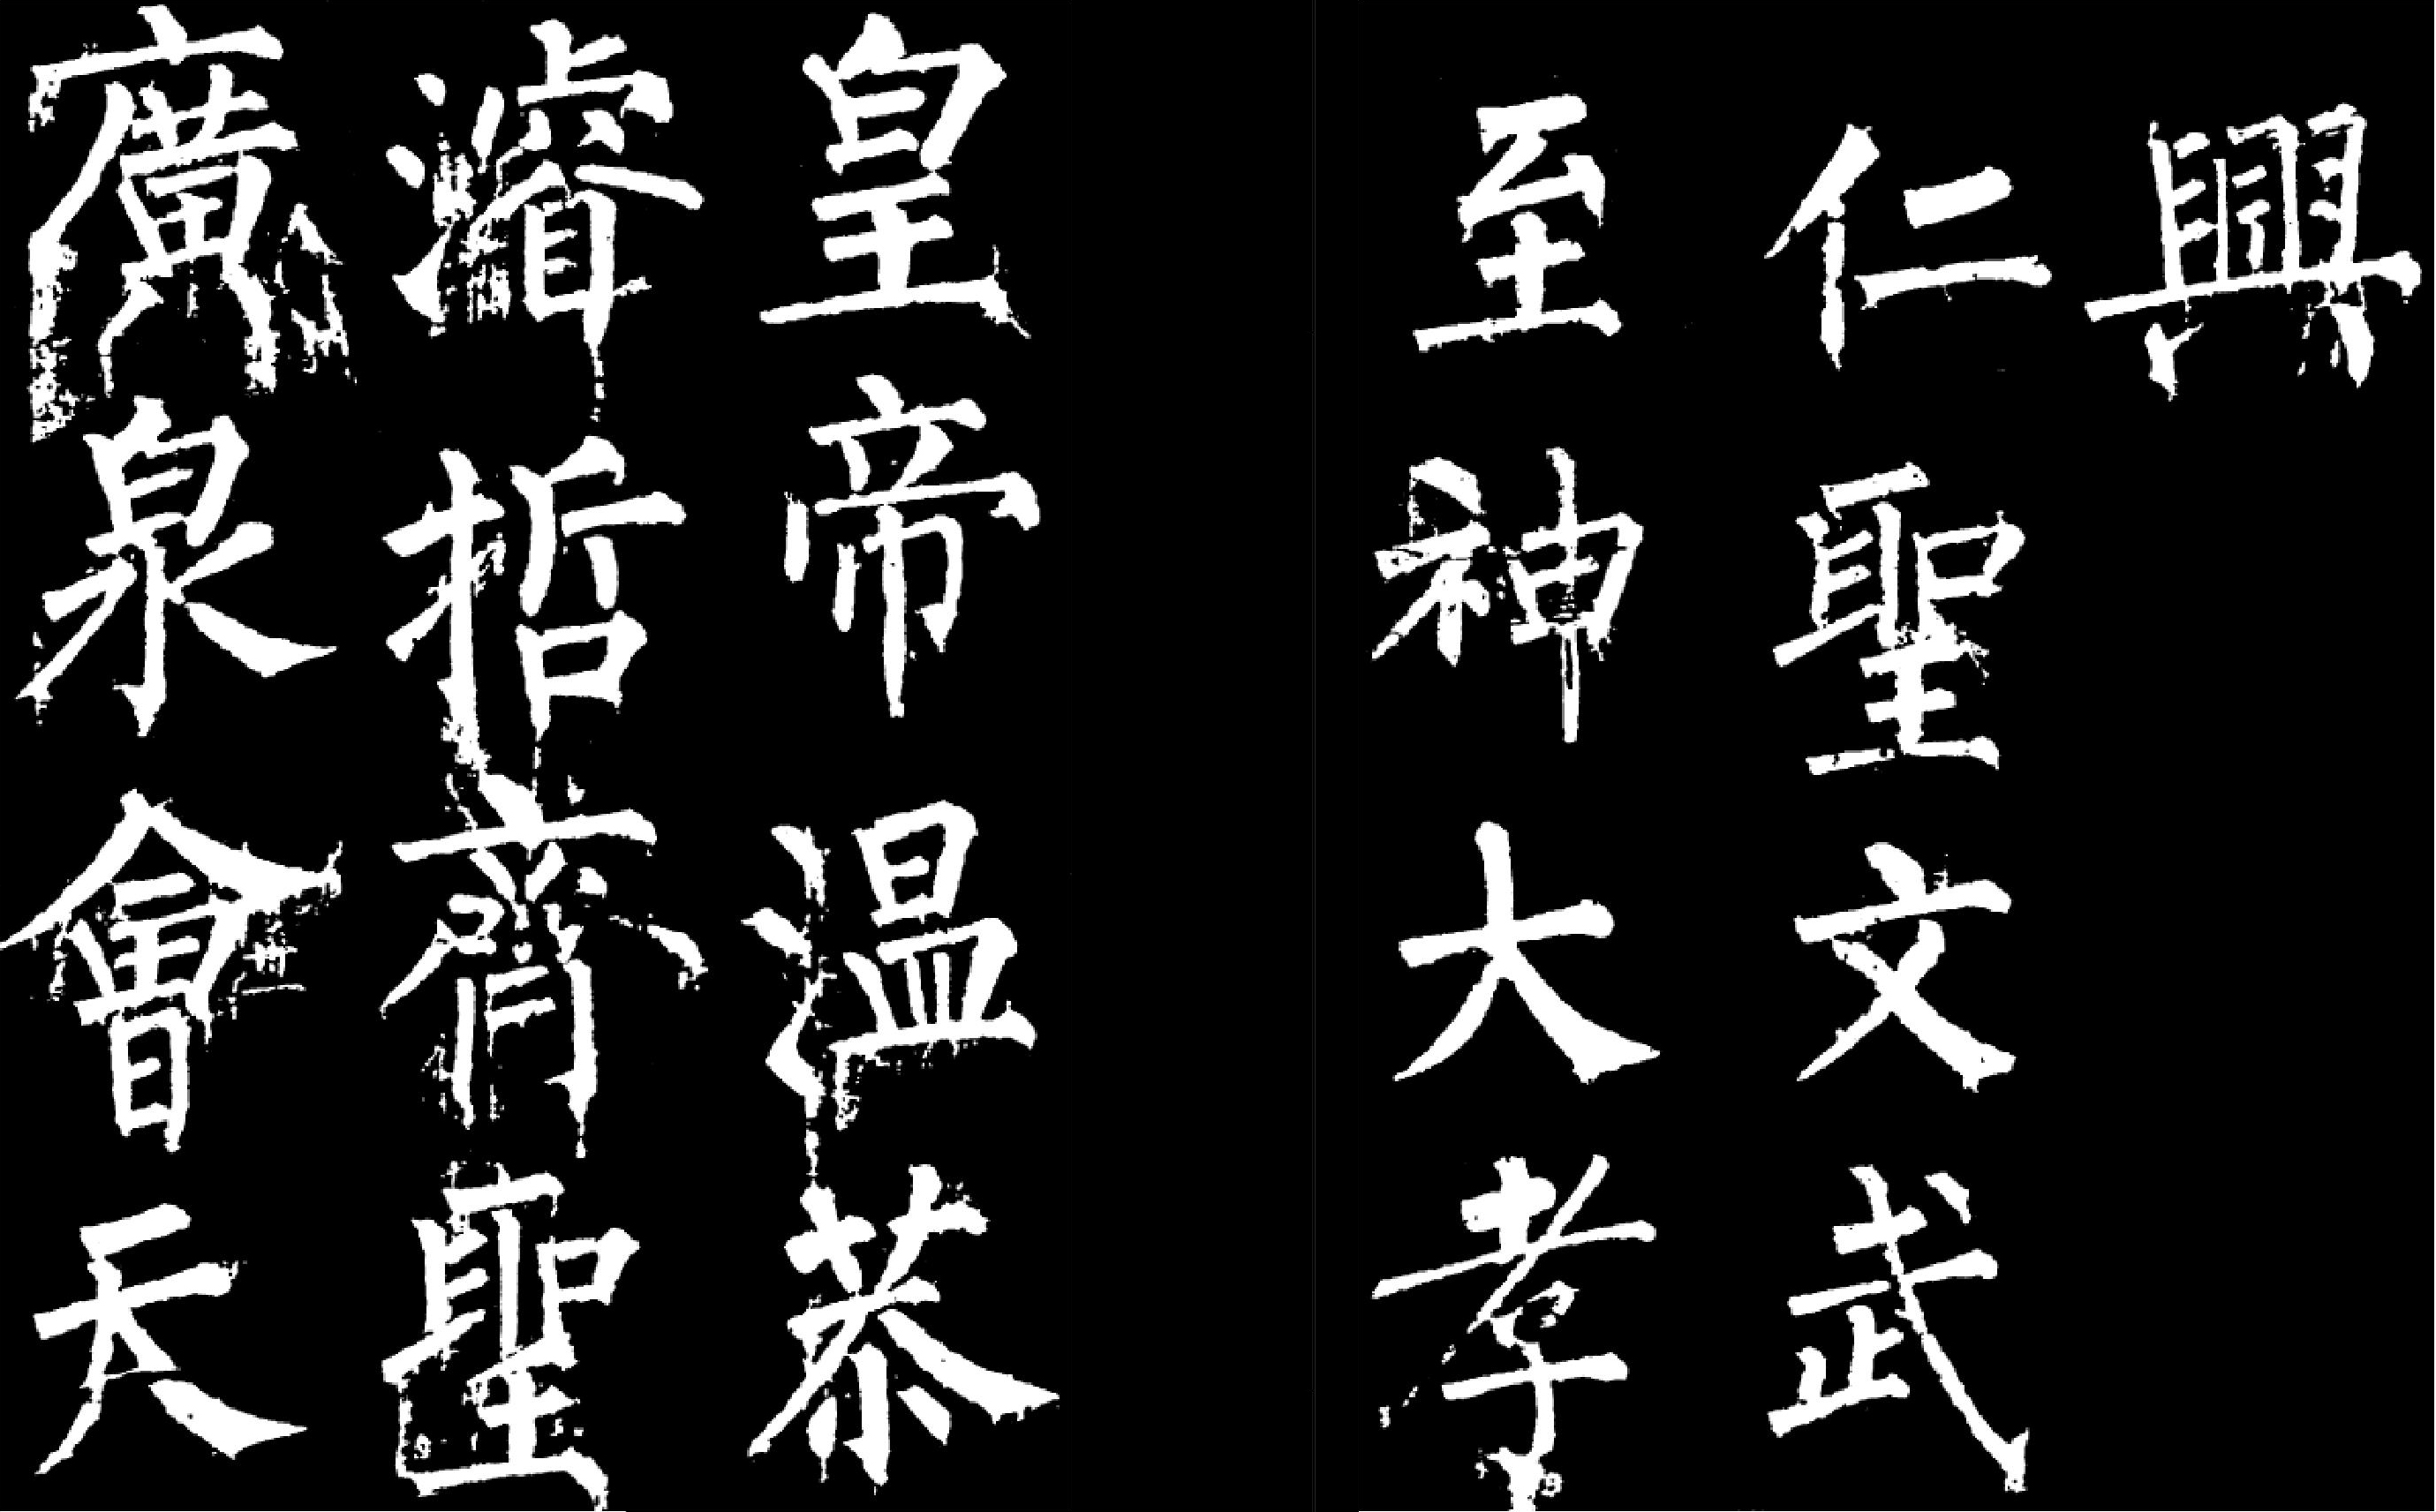 興
仁聖文武
至神大孝
皇帝溫恭
濬哲齊聖
廣泉會天